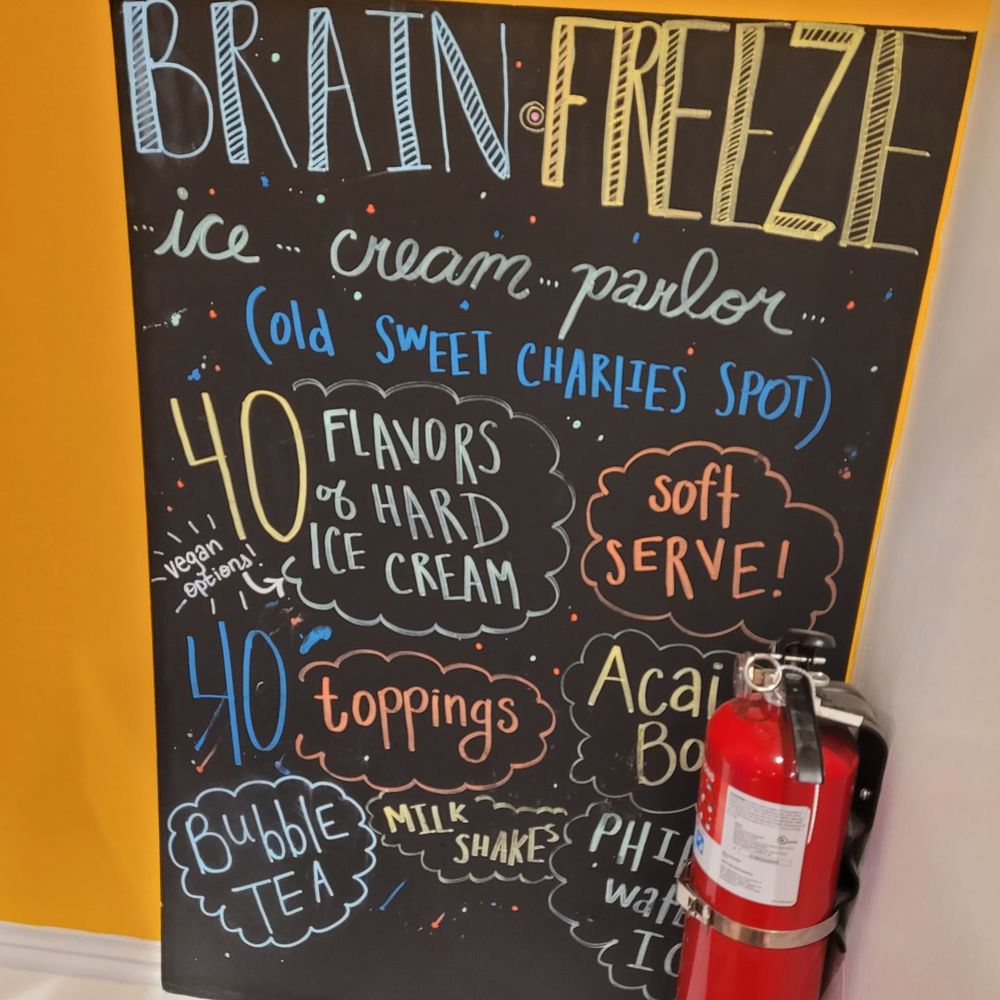 BRAIN•FREEZE
...ice ... cream ... parlor...
(old SWEET CHARLIES SPOT)
40 FLAVORS
of HARD
ICE CREAM
vegan
options!
soft
SERVE!
40 toppings
Acai
Bo
BubblE
TEA
MILK
SHAKES
PHI
waf
IC